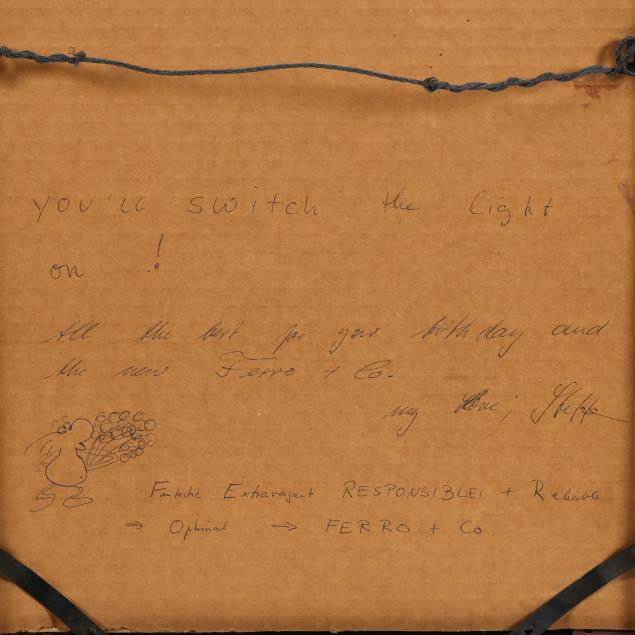 you'll switch the light
on !
All the best for your birthday and
the new Ferro + Co.
my love, Steffa
Fantastic Extravagant RESPONSIBLE! + Reliable
⇒ Optimal → FERRO + Co